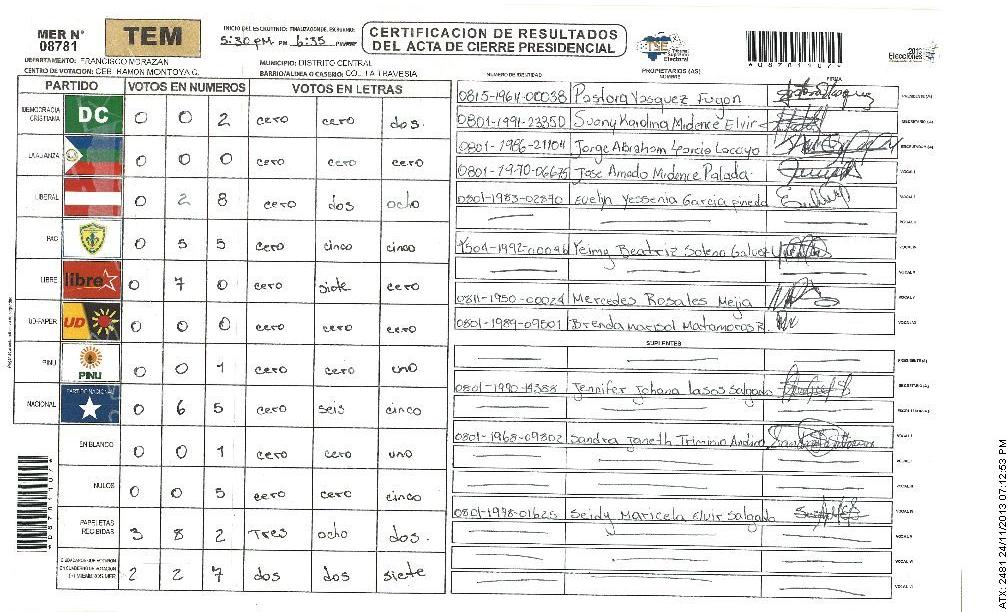 MER N° 08781
TEM
INICIO DEL ESCRUTINIO: FINALIZACION DEL ESCRUTINIO:
5:30 PM PM 6:35 PM
CERTIFICACION DE RESULTADOS
DEL ACTA DE CIERRE PRESIDENCIAL
TSE Tribunal Supremo Electoral
2013 Elecciones
DEPARTAMENTO: FRANCISCO MORAZAN
MUNICIPIO: DISTRITO CENTRAL
CENTRO DE VOTACION: CEB. RAMON MONTOYA G.
BARRIO/ALDEA O CASERIO: COL. LA TRAVESIA
NUMERO DE IDENTIDAD
PROPIETARIOS (AS)
NOMBRE
FIRMA
PARTIDO VOTOS EN NUMEROS VOTOS EN LETRAS
DEMOCRACIA CRISTIANA DC 0 0 2 cero cero dos.
LA ALIANZA 0 0 0 cero cero cero
LIBERAL 0 2 8 cero dos ocho
PAC 0 5 5 cero cinco cinco
LIBRE libre 0 7 0 cero siete cero
UD-FAPER UD 0 0 0 cero cero cero
PINU PINU 0 0 1 cero cero uno
NACIONAL PARTIDO NACIONAL 0 6 5 cero seis cinco
EN BLANCO 0 0 1 cero cero uno
NULOS 0 0 5 cero cero cinco
PAPELETAS RECIBIDAS 3 8 2 Tres ocho dos.
2 2 7 dos dos siete
0815-1964-00038 Pastora Vasquez Fugon PRESIDENTE(A)
0801-1991-23350 Suany Karolina Midence Elvir SECRETARIO (A)
0801-1986-21104 Jorge Abraham Garcia Locayo
0801-1970-06675 Jose Amado Midence Palada VOCAL I
0801-1983-02890 Evelyn Yessenia Garcia Pineda
Yeimy Beatriz Galvez
0811-1950-00024 Mercedes Rosales Mejia VOCAL V
0801-1989-09501 Brenda Marisol Matamoros R.
SUPLENTES
PRESIDENTE(A)
0801-1990-14388 Jennifer Johana Lasos Salgado SECRETARIO (A)
0801-1968-09302 Sandra Janeth Triminio Andino VOCAL I
0801-1998-01625 Seidy Maricela Elvir Salgado
ATX: 2481 24/11/2013 07:12:53 PM